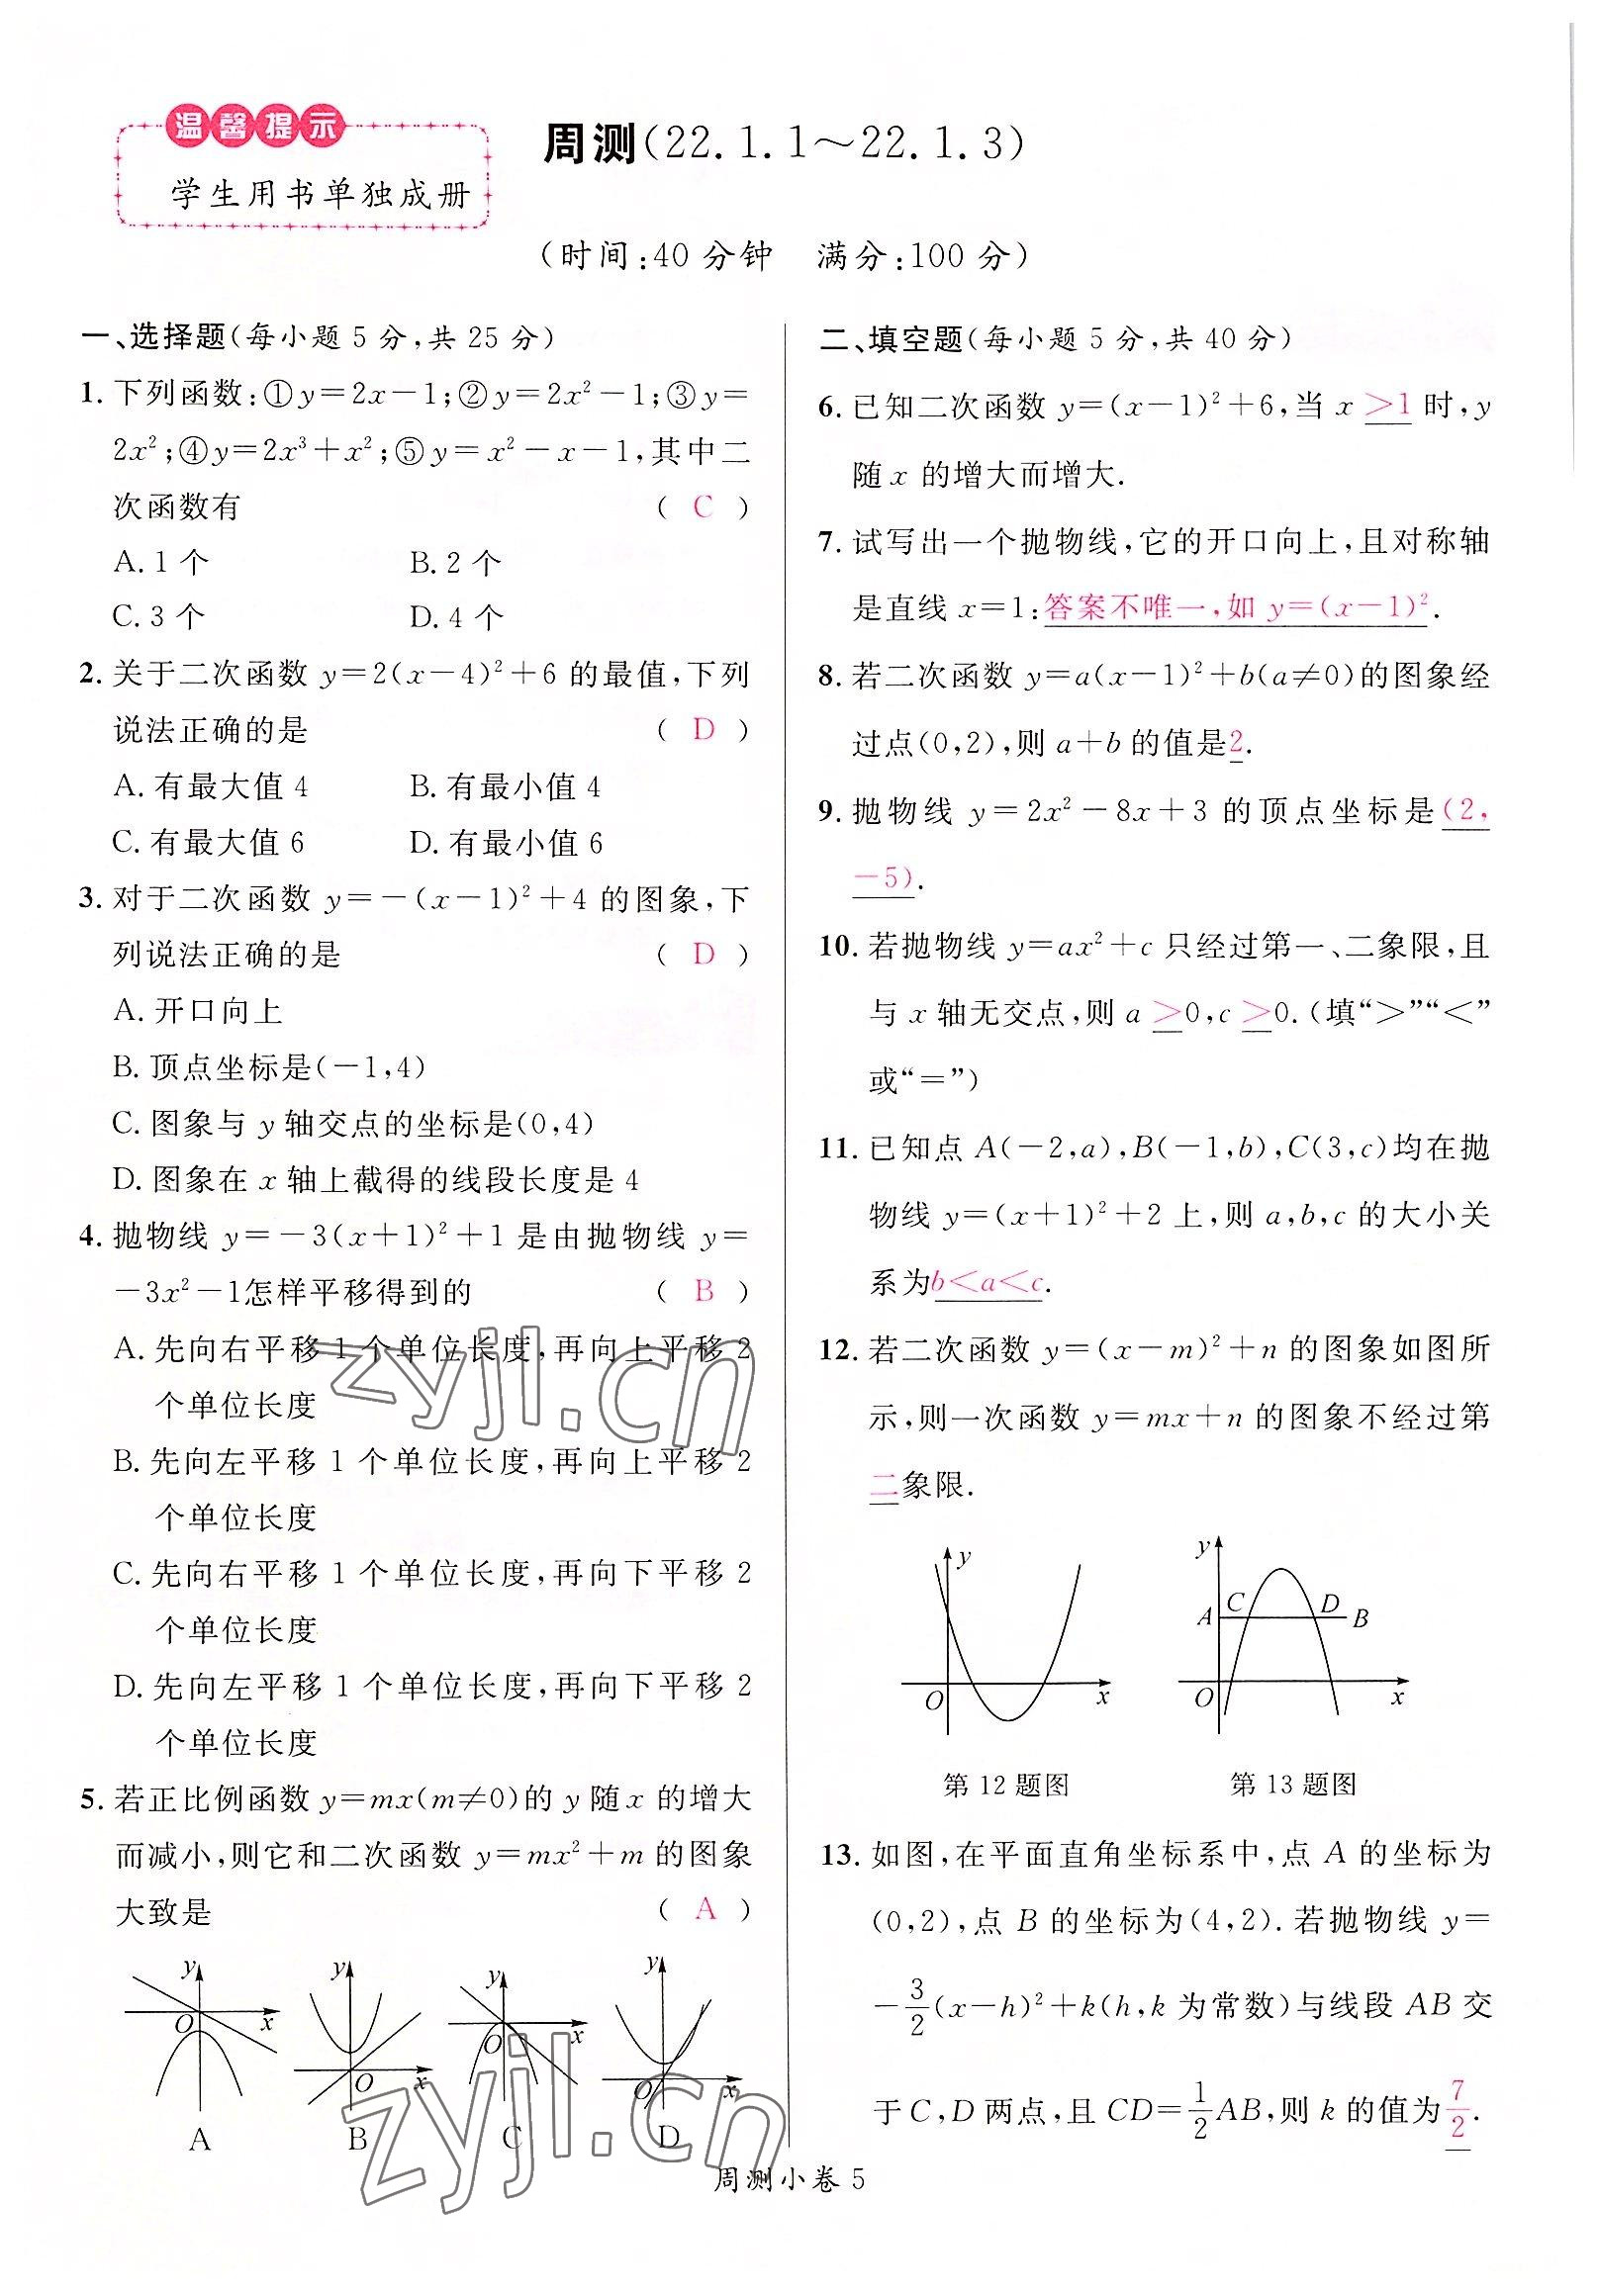 温馨提示
学生用书单独成册
周测(22.1.1～22.1.3)
(时间:40分钟　满分:100分)
一、选择题(每小题5分,共25分)
1. 下列函数:①y=2x-1;②y=2x²-1;③y=
2x²;④y=2x³+x²;⑤y=x²-x-1,其中二
次函数有 ( C )
A. 1个 B. 2个
C. 3个 D. 4个
2. 关于二次函数 y=2(x-4)²+6 的最值,下列
说法正确的是 ( D )
A. 有最大值4 B. 有最小值4
C. 有最大值6 D. 有最小值6
3. 对于二次函数 y=-(x-1)²+4 的图象,下
列说法正确的是 ( D )
A. 开口向上
B. 顶点坐标是(-1,4)
C. 图象与 y 轴交点的坐标是(0,4)
D. 图象在 x 轴上截得的线段长度是4
4. 抛物线 y=-3(x+1)²+1 是由抛物线 y=
-3x²-1怎样平移得到的 ( B )
A. 先向右平移1个单位长度,再向上平移2
个单位长度
B. 先向左平移1个单位长度,再向上平移2
个单位长度
C. 先向右平移1个单位长度,再向下平移2
个单位长度
D. 先向左平移1个单位长度,再向下平移2
个单位长度
5. 若正比例函数 y=mx(m≠0)的 y 随 x 的增大
而减小,则它和二次函数 y=mx²+m 的图象
大致是 ( A )
y O x
y O x
y O x
y O x
A B C D
二、填空题(每小题5分,共40分)
6. 已知二次函数 y=(x-1)²+6,当 x >1 时,y
随 x 的增大而增大.
7. 试写出一个抛物线,它的开口向上,且对称轴
是直线 x=1:答案不唯一,如 y=(x-1)².
8. 若二次函数 y=a(x-1)²+b(a≠0)的图象经
过点(0,2),则 a+b 的值是2.
9. 抛物线 y=2x²-8x+3 的顶点坐标是(2,
-5).
10. 若抛物线 y=ax²+c 只经过第一、二象限,且
与 x 轴无交点,则 a >0,c >0.(填“>”“<”
或“=”)
11. 已知点 A(-2,a),B(-1,b),C(3,c)均在抛
物线 y=(x+1)²+2 上,则 a,b,c 的大小关
系为b<a<c.
12. 若二次函数 y=(x-m)²+n 的图象如图所
示,则一次函数 y=mx+n 的图象不经过第
二象限.
y O x
y A C D B O x
第12题图 第13题图
13. 如图,在平面直角坐标系中,点 A 的坐标为
(0,2),点 B 的坐标为(4,2).若抛物线 y=
-3/2(x-h)²+k(h,k 为常数)与线段 AB 交
于 C,D 两点,且 CD=1/2AB,则 k 的值为7/2.
周测小卷 5
zyjl.cn
zyjl.cn